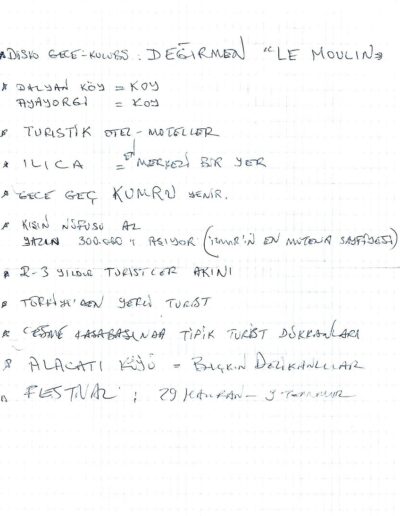 * DİSKO GECE-KULUBÜ : DEĞİRMEN "LE MOULIN"
* DALYAN KÖY = KOY
AYAYORGİ = KOY
* TURİSTİK OTEL-MOTELLER
* ILICA = EN MERKEZİ BİR YER
* GECE GEÇ KUMRU YENİR.
* KIŞIN NÜFUSU AZ
YAZIN 300.000'İ AŞIYOR (İZMİR'İN EN MUTENA SAYFİYESİ)
* 2-3 YILDIR TURİSTLER AKINI
* TÜRKİYE'DEN YERLİ TURİST
* ÇEŞME KASABASINDA TİPİK TURİST DÜKKANLARI
* ALAÇATI KÖYÜ = BIÇKIN DELİKANLILAR
* FESTİVAL : 29 HAZİRAN - TEMMUZ